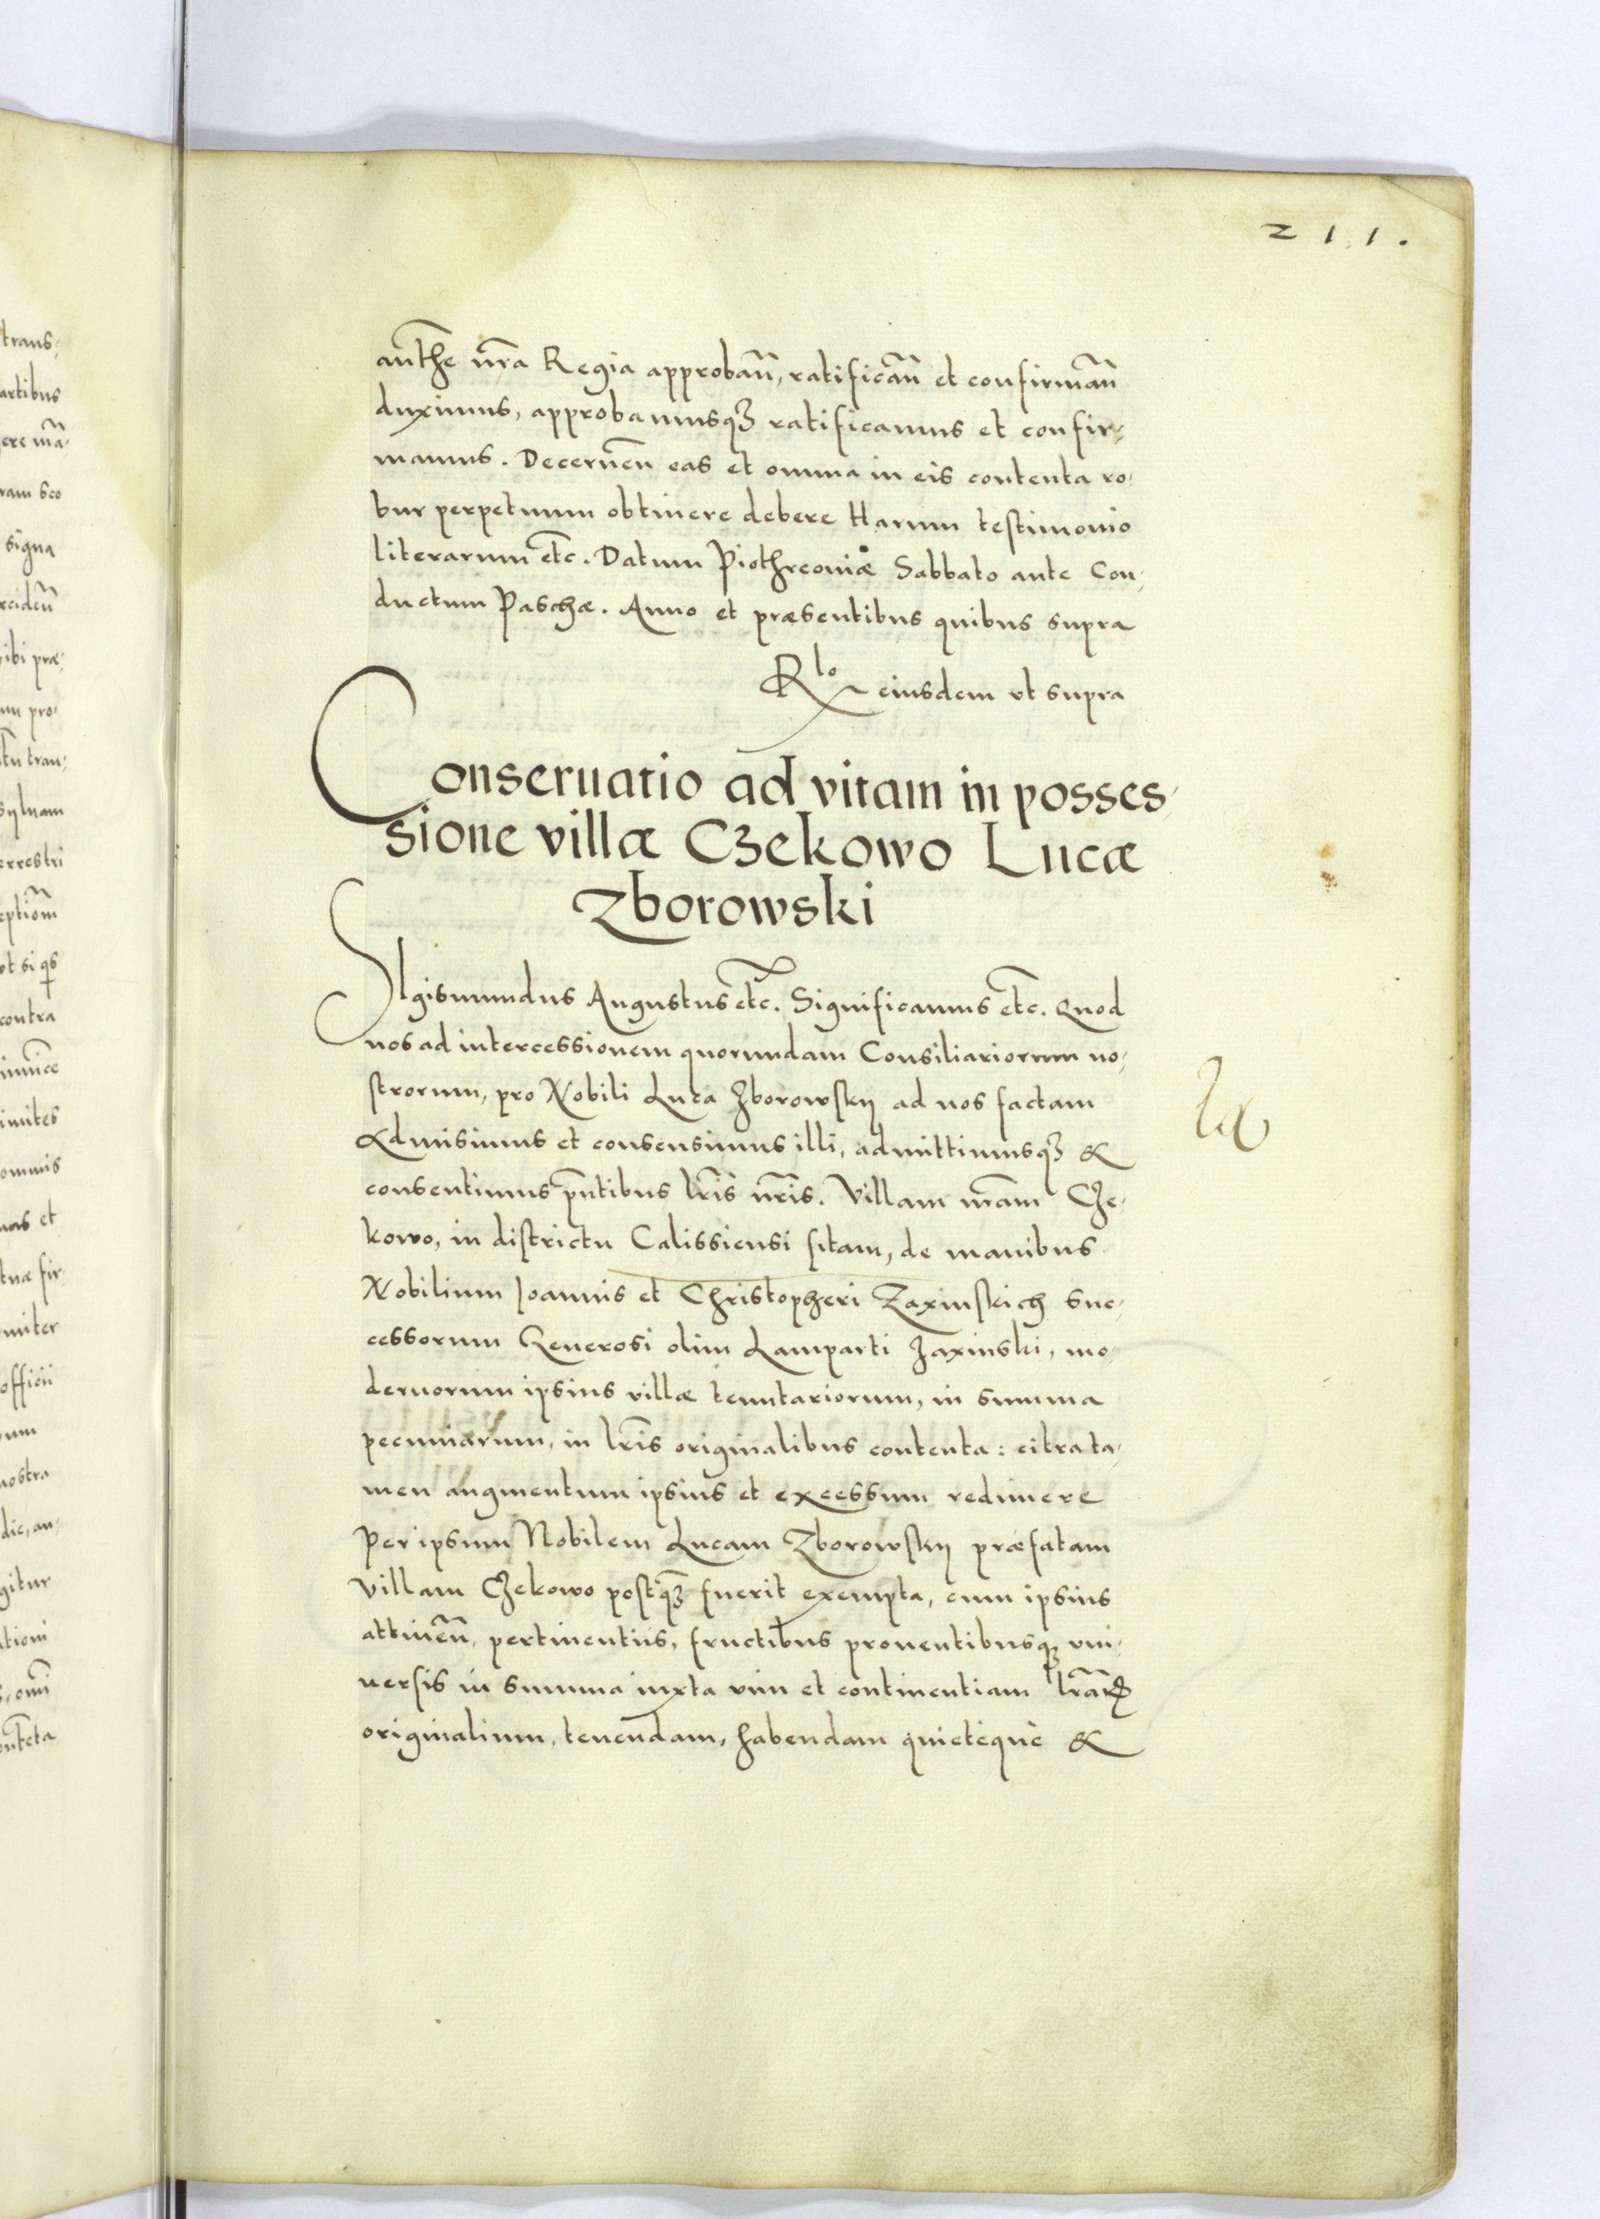 211.
autħe nr̃a Regia approbañ, ratificañ et confirmañ
duximus, approbamusqꝫ ratificamus et confir-
mamus. Decerneñ eas et omnia in eis contenta ro-
bur perpetuum obtinere debere Harum testimonio
literarum etc̃. Datum Piothrcoviæ Sabbato ante Con-
ductum Paschæ. Anno et præsentibus quibus supra
Rlo eiusdem vt supra
Conseruatio ad vitam in posses-
sione villæ Czekowo Lucæ
Zborowski
SIgismundus Augustus etc̃. Significamus etc̃. Quod
nos ad intercessionem quorundam Consiliariorum no-
strorum, pro Nobili Luca Zborowskij ad nos factam
Admisimus et consensimus illi, admittimusqꝫ &
consentimus pñtibus lr̃is nr̃is. Villam nr̃am Cze-
kowo, in districtu Calissiensi sitam, de manibus
Nobilium Joannis et Christopheri Zaxinskich suc-
cessorum Generosi olim Lamparti Zaxinski, mo-
dernorum ipsius villæ tenutariorum, in summa
pecuniarum, in lr̃is originalibus contenta: citra ta-
men augmentum ipsius et excessum redimere
Per ipsum Nobilem Lucam Zborowskij præfatam
Villam Czekowo postqꝫ fuerit exempta, cum ipsius
attineñ, pertinentiis, fructibus prouentibusqꝫ vni-
uersis in summa iuxta vim et continentiam lr̃arꝝ
originalium, tenendam, habendam quietequè &